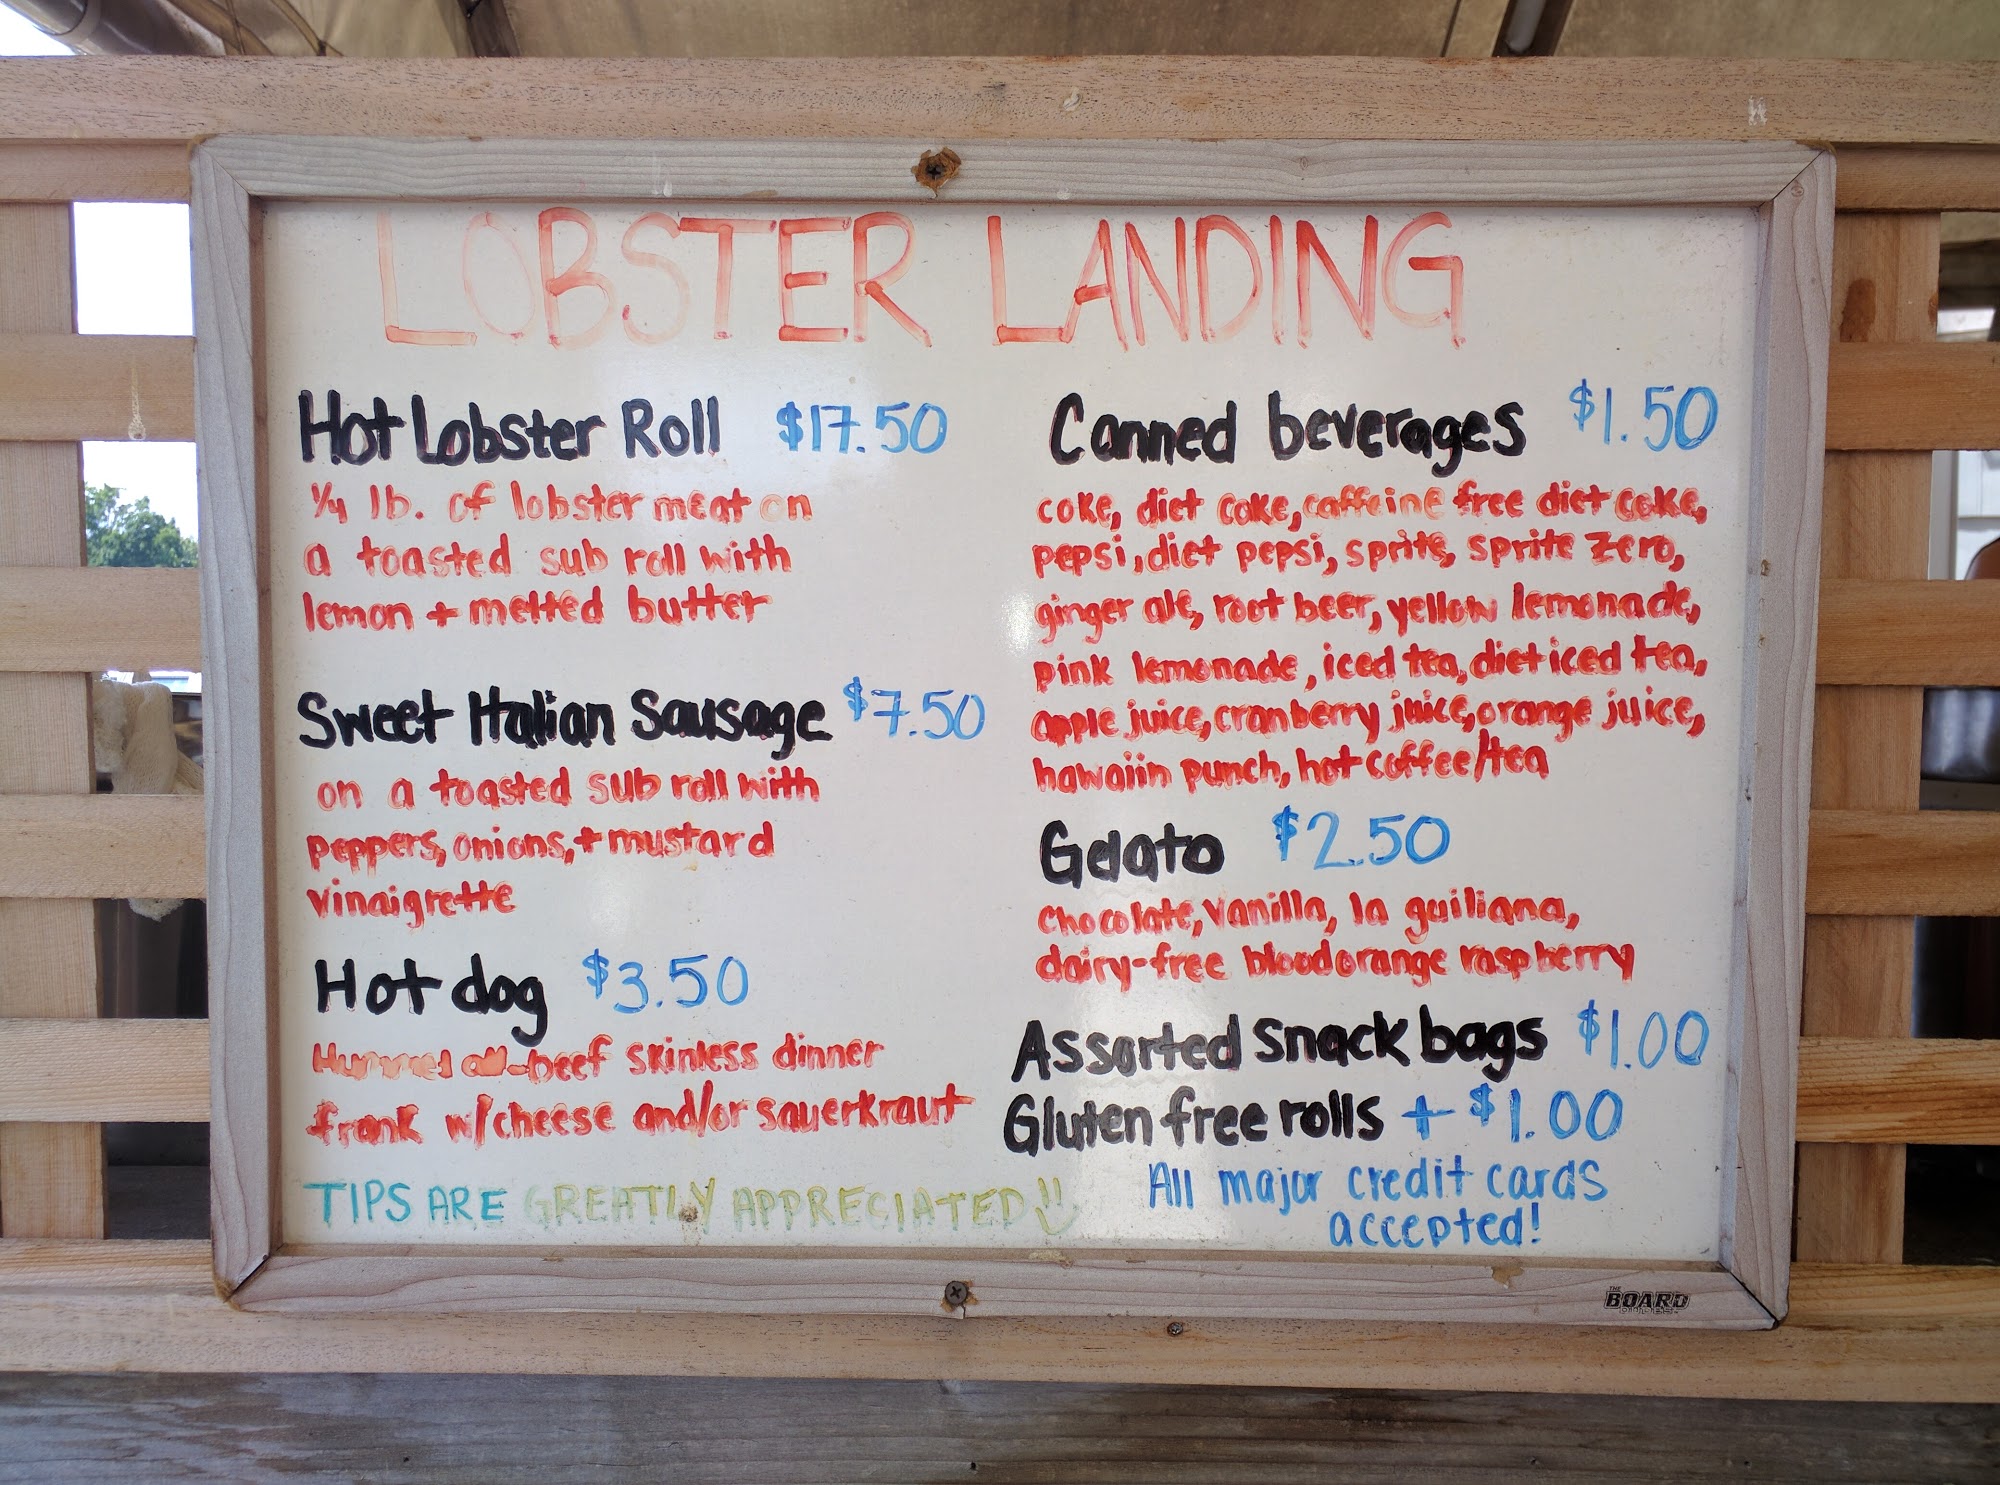 LOBSTER LANDING
Hot Lobster Roll $17.50
1/4 lb. of lobster meat on
a toasted sub roll with
lemon + melted butter
Sweet Italian Sausage $7.50
on a toasted sub roll with
peppers, onions, + mustard
vinaigrette
Hot dog $3.50
Hummel all-beef skinless dinner
frank w/cheese and/or sauerkraut
TIPS ARE GREATLY APPRECIATED
Canned beverages $1.50
coke, diet coke, caffeine free diet coke,
pepsi, diet pepsi, sprite, sprite zero,
ginger ale, root beer, yellow lemonade,
pink lemonade, iced tea, diet iced tea,
apple juice, cranberry juice, orange juice,
hawaiin punch, hot coffee/tea
Gelato $2.50
chocolate, vanilla, la guiliana,
dairy-free blood orange raspberry
Assorted snack bags $1.00
Gluten free rolls + $1.00
All major credit cards
accepted!
THE
BOARD